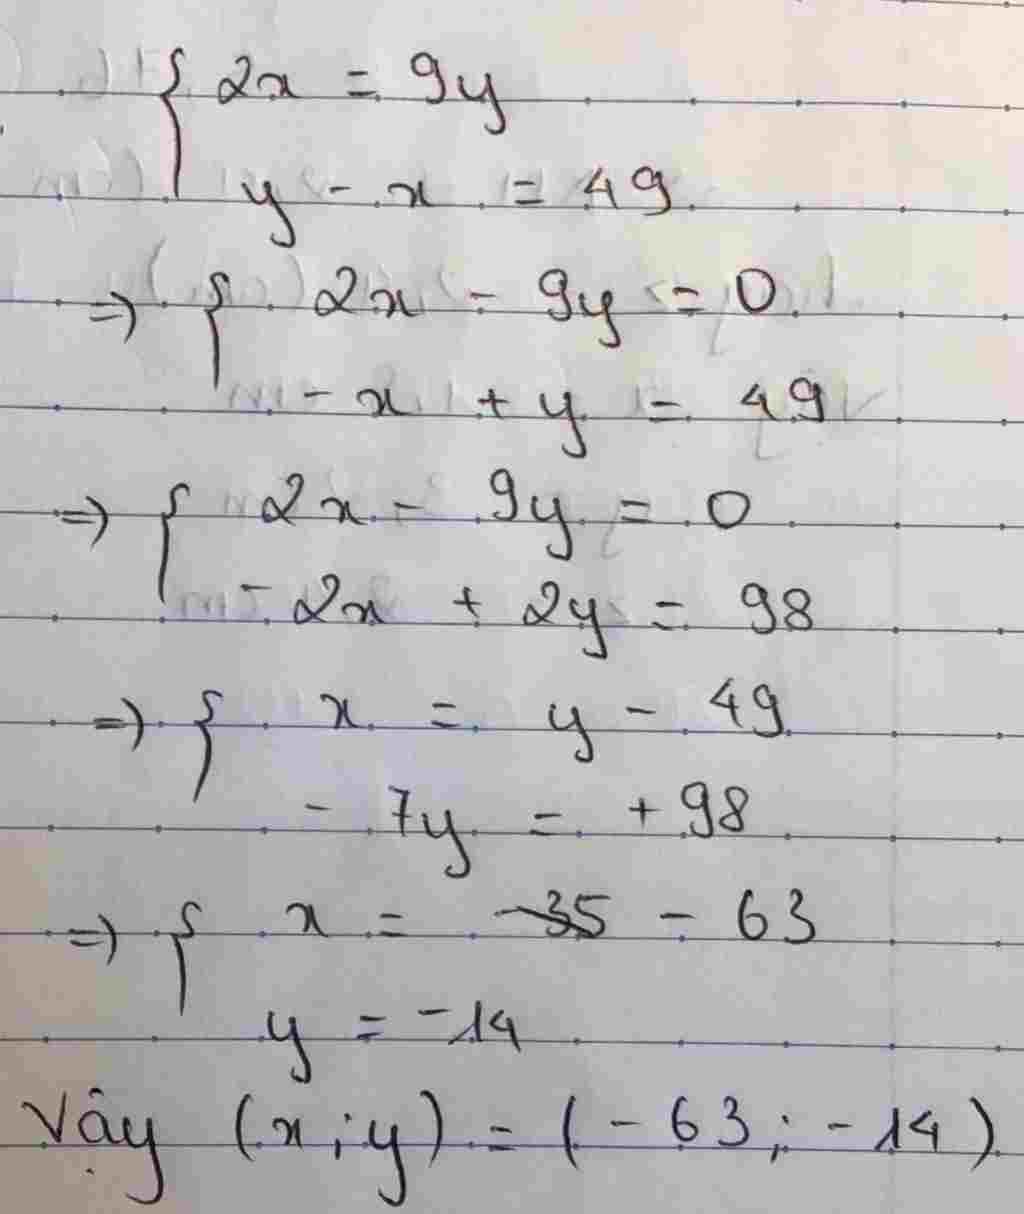 { 2x = 9y
y - x = 49
=> { 2x - 9y = 0
- x + y = 49
=> { 2x - 9y = 0
- 2x + 2y = 98
=> { x = y - 49
- 7y = + 98
=> { x = -35 - 63
y = -14
Vậy (x; y) = (-63; -14)